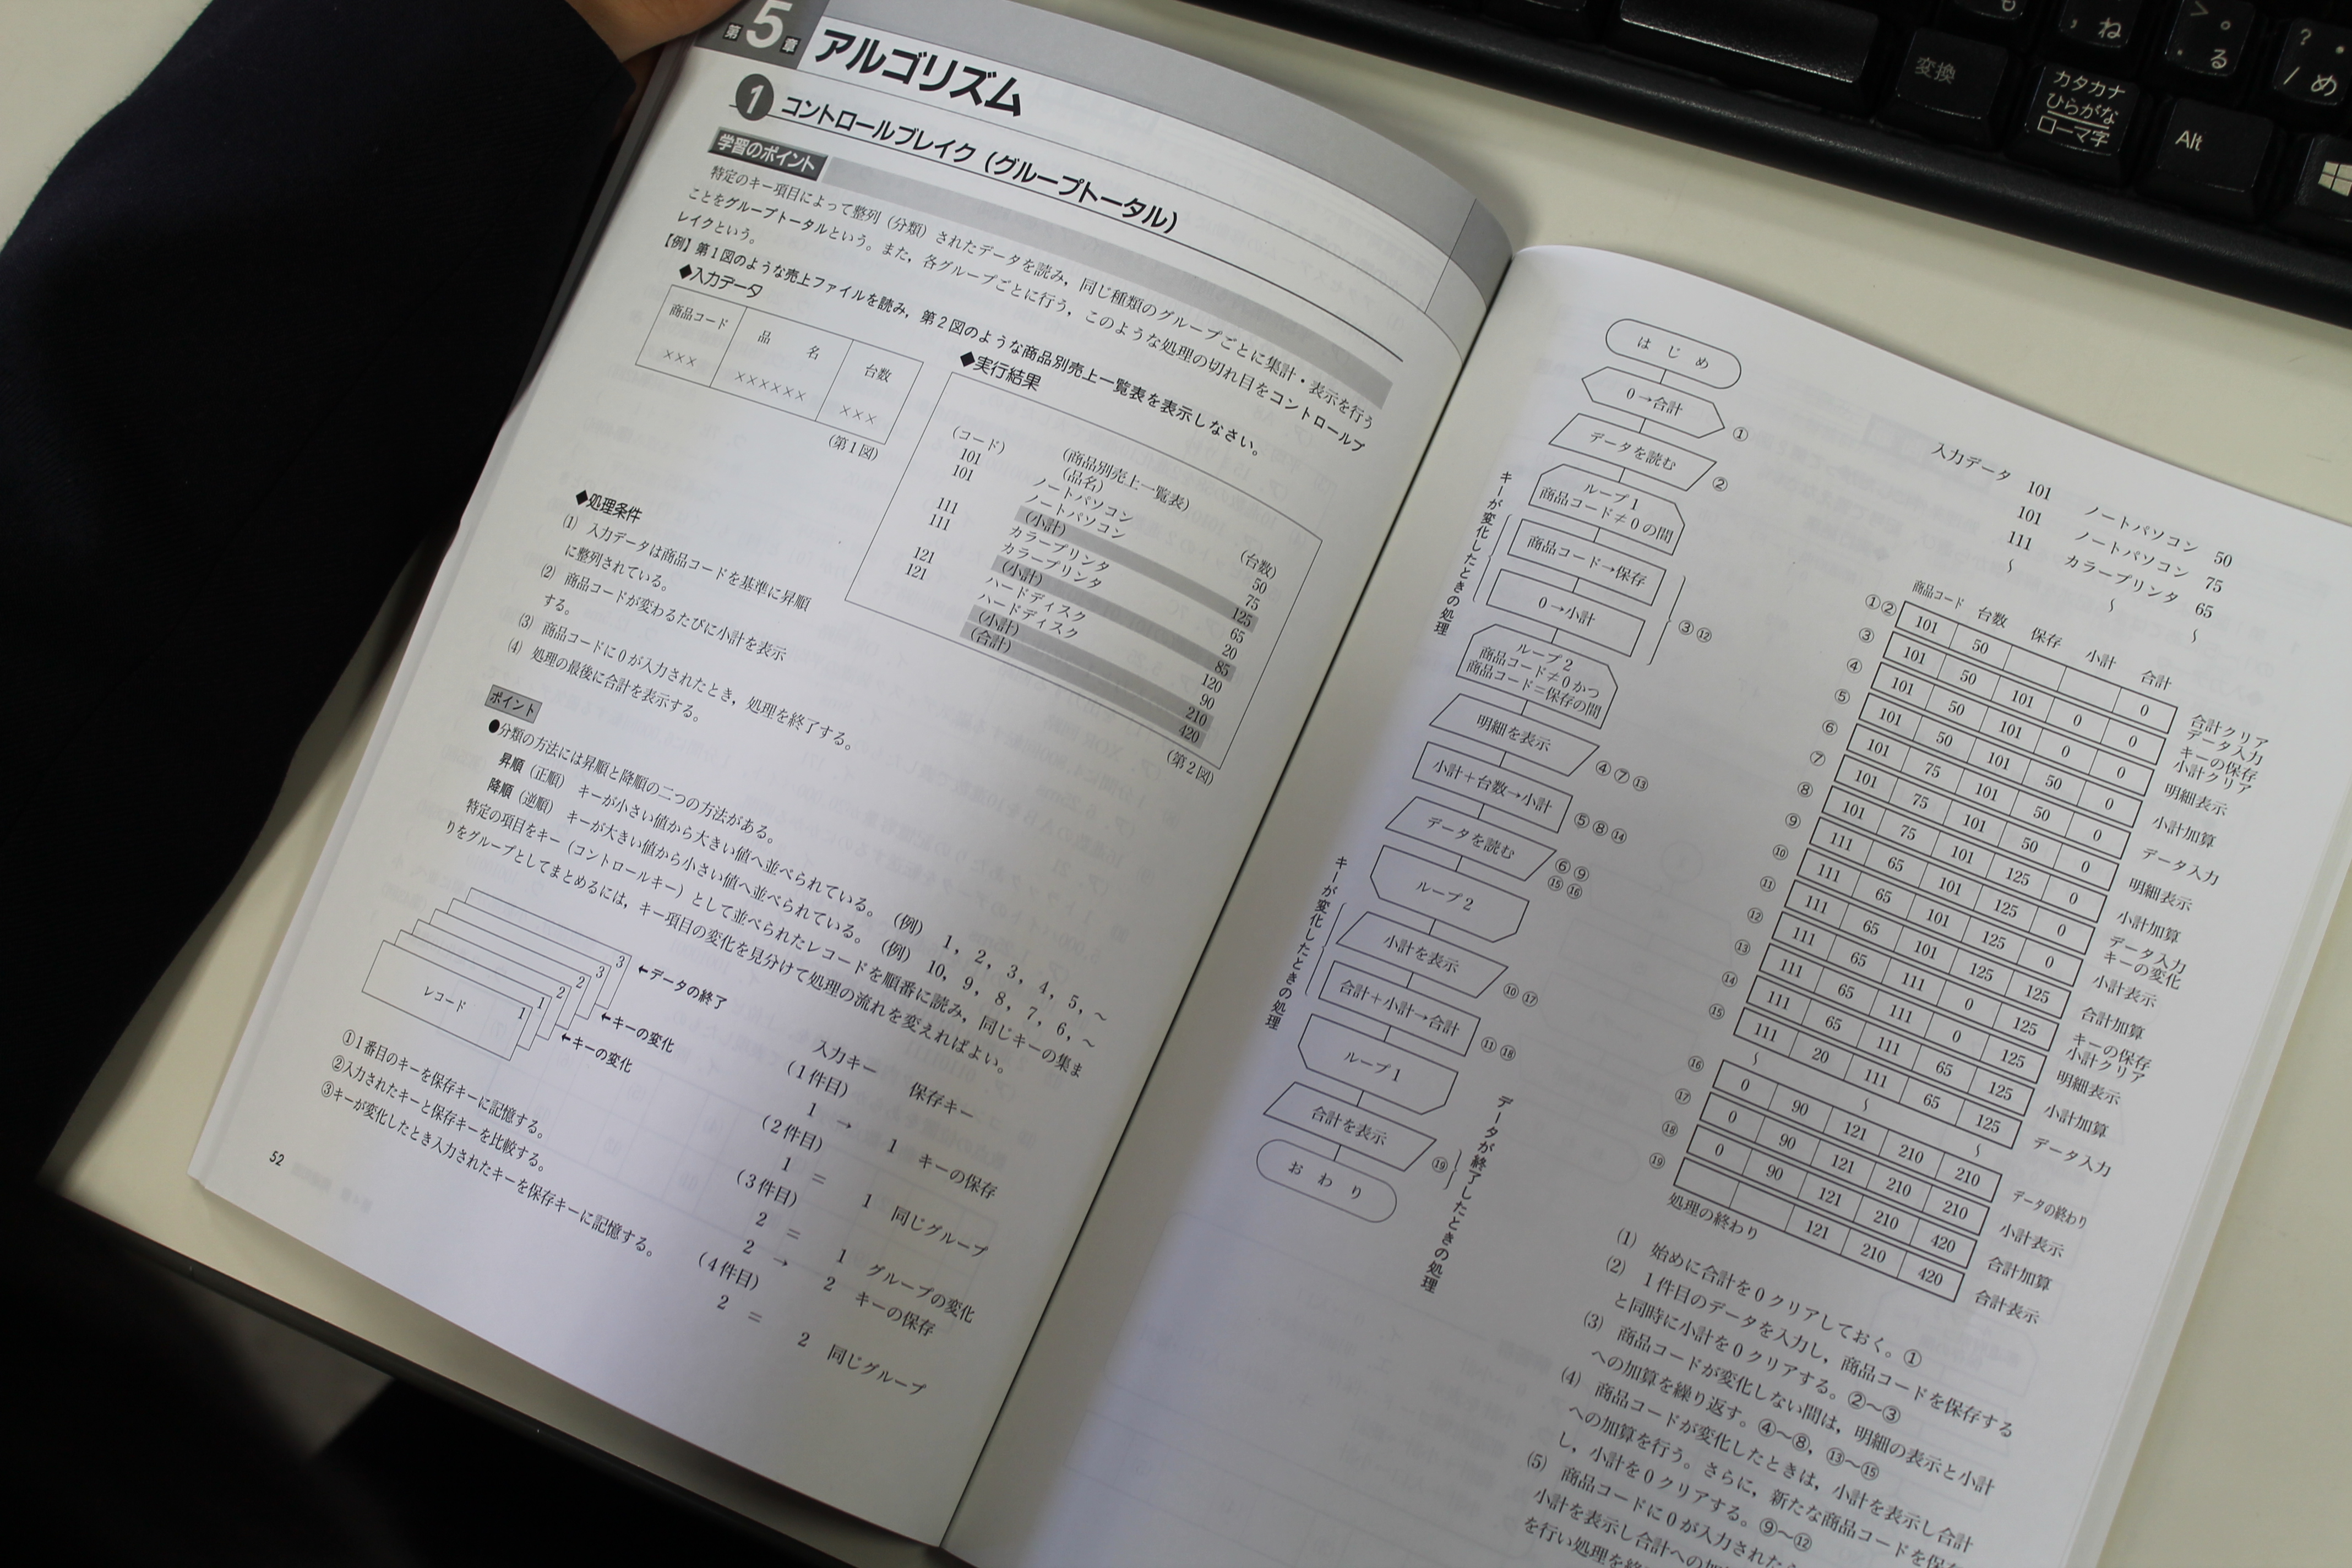 第5章 アルゴリズム
1 コントロールブレイク（グループトータル）
学習のポイント
特定のキー項目によって整列（分類）されたデータを読み，同じ種類のグループごとに集計・表示を行う
ことをグループトータルという。また，各グループごとに行う，このような処理の切れ目をコントロールブ
レイクという。
【例】第1図のような売上ファイルを読み，第2図のような商品別売上一覧表を表示しなさい。
◆入力データ
商品コード 品 名 台数
××× ×××××× ×××
(第1図)
◆実行結果
(商品別売上一覧表)
(コード) (品名) (台数)
101 ノートパソコン 50
101 ノートパソコン 75
(小計) 125
111 カラープリンタ 65
111 カラープリンタ 20
(小計) 85
121 ハードディスク 120
121 ハードディスク 90
(小計) 210
(合計) 420
(第2図)
◆処理条件
(1) 入力データは商品コードを基準に昇順
に整列されている。
(2) 商品コードが変わるたびに小計を表示
する。
(3) 商品コードに0が入力されたとき，処理を終了する。
(4) 処理の最後に合計を表示する。
ポイント
●分類の方法には昇順と降順の二つの方法がある。
昇順（正順） キーが小さい値から大きい値へ並べられている。（例） 1，2，3，4，5，～
降順（逆順） キーが大きい値から小さい値へ並べられている。（例） 10，9，8，7，6，～
特定の項目をキー（コントロールキー）として並べられたレコードを順番に読み，同じキーの集ま
りをグループとしてまとめるには，キー項目の変化を見分けて処理の流れを変えればよい。
レコード 1 1 2 2 3 3
←データの終了
←キーの変化
←キーの変化
①1番目のキーを保存キーに記憶する。
②入力されたキーと保存キーを比較する。
③キーが変化したとき入力されたキーを保存キーに記憶する。
入力キー 保存キー
(1件目)
1 → 1 キーの保存
(2件目)
1 = 1 同じグループ
(3件目)
2 = 1 グループの変化
2 → 2 キーの保存
(4件目)
2 = 2 同じグループ
52
はじめ
0→合計 ①
データを読む ②
ループ1
商品コード≠0の間
キーが変化したときの処理
商品コード→保存
0→小計
③⑫
ループ2
商品コード≠0かつ
商品コード=保存の間
明細を表示 ④⑦⑬
小計+台数→小計 ⑤⑧⑭
データを読む ⑥⑨
⑮⑯
ループ2
キーが変化したときの処理
小計を表示 ⑩⑰
合計+小計→合計 ⑪⑱
ループ1
合計を表示 ⑲
データが終了したときの処理
おわり
入力データ 101 ノートパソコン 50
101 ノートパソコン 75
111 カラープリンタ 65
～ ～ ～
商品コード 台数 保存 小計 合計
①② 101 50 0 合計クリア データ入力
③ 101 50 101 0 0 キーの保存 小計クリア
④ 101 50 101 0 0 明細表示
⑤ 101 50 101 50 0 小計加算
⑥ 101 75 101 50 0 データ入力
⑦ 101 75 101 50 0 明細表示
⑧ 101 75 101 125 0 小計加算
⑨ 111 65 101 125 0 データ入力 キーの変化
⑩ 111 65 101 125 0 小計表示
⑪ 111 65 101 125 125 合計加算
⑫ 111 65 111 0 125 キーの保存 小計クリア
⑬ 111 65 111 0 125 明細表示
⑭ 111 65 111 65 125 小計加算
⑮ 111 20 111 65 125 データ入力
～ ～ ～
⑯ 0 90 121 210 210 データの終わり
⑰ 0 90 121 210 210 小計表示
⑱ 0 90 121 210 420 合計加算
⑲ 121 210 420 合計表示
処理の終わり
(1) 始めに合計を0クリアしておく。①
(2) 1件目のデータを入力し，商品コードを保存する
と同時に小計を0クリアする。②～③
(3) 商品コードが変化しない間は，明細の表示と小計
への加算を繰り返す。④～⑧，⑬～⑮
(4) 商品コードが変化したときは，小計を表示し合計
への加算を行う。さらに，新たな商品コードを保存
し，小計を0クリアする。⑨～⑫
(5) 商品コードに0が入力されたら
小計を表示し合計への加
を行い処理を終
変換
カタカナ
ひらがな
ローマ字
Alt
も
ね
る
め